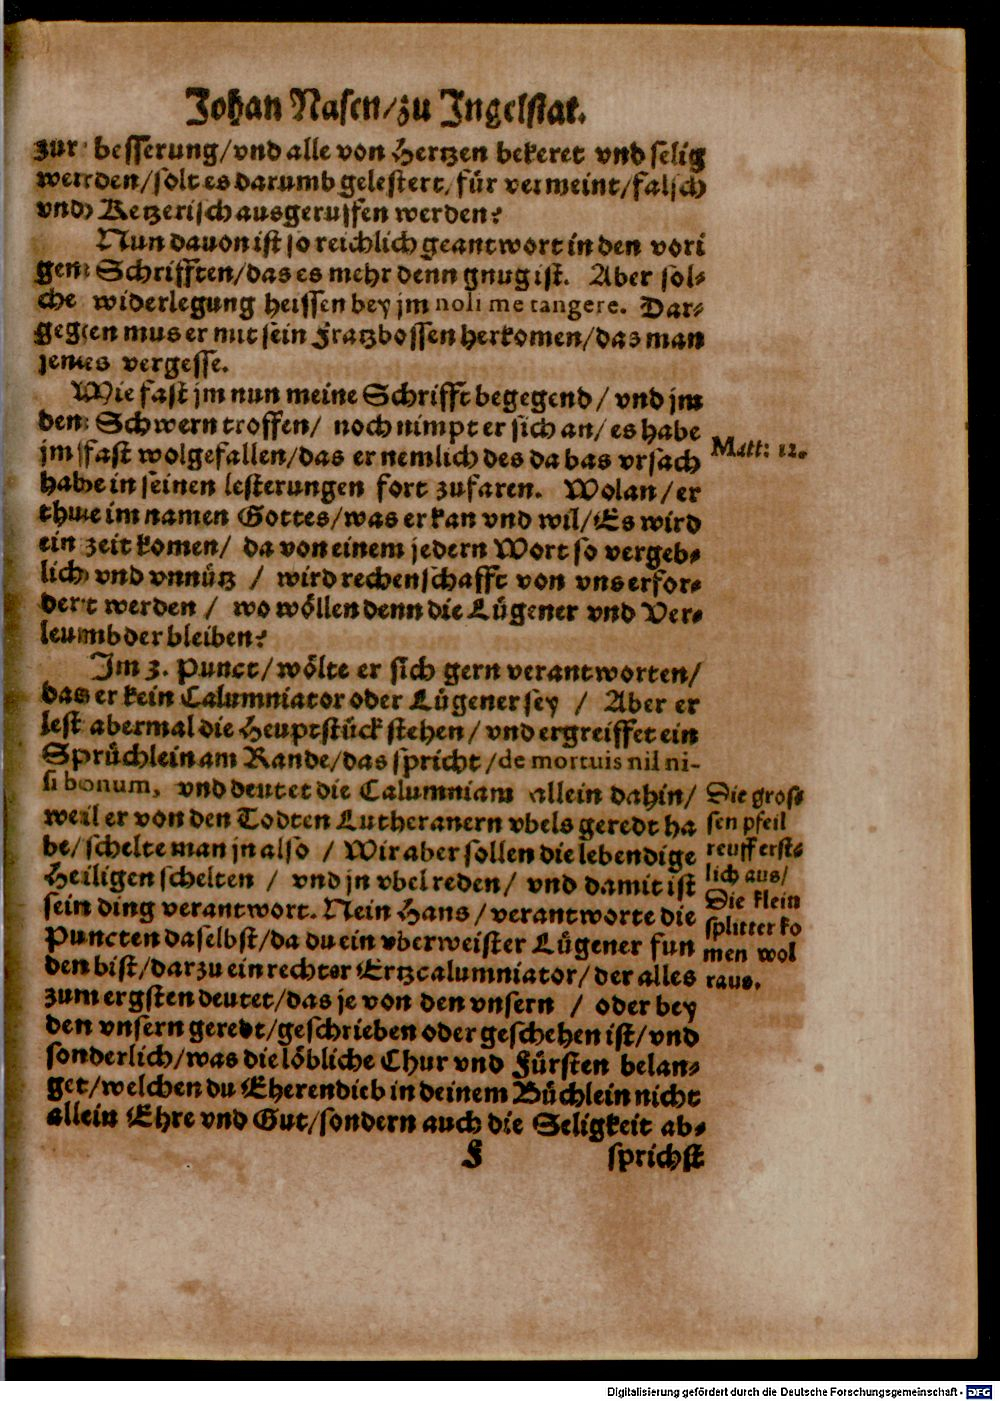 Johan Nasen/zu Ingelstat.
zur besserung/vnd alle von Hertzen bekeret vnd selig
werden/solt es darumb gelestert/für vermeint/falsch
vnd Ketzerisch ausgeruffen werden?
Nun dauon ist so reichlich geantwort in den vori
gen Schrifften/das es mehr denn gnug ist. Aber sol-
che widerlegung heissen bey jm noli me tangere. Dar-
gegen mus er mit sein Fratzbossen herkomen/das man
jenes vergesse.
Wie fast jm nun meine Schrifft begegend/vnd jm
den Schwern troffen/ noch nimpt er sich an/es habe
jm fast wolgefallen/das er nemlich des da bas vrsach
habe in seinen lesterungen fort zufaren. Wolan/er
thue im namen Gottes/was er kan vnd wil/Es wird
ein zeit komen/ da von einem jedern Wort so vergeb-
lich vnd vnnütz / wird rechenschafft von vns erfor-
dert werden / wo wöllen denn die Lügener vnd Ver-
leumbder bleiben?
Matt: 12.
Im 3. Punct/wölte er sich gern verantworten/
das er kein Calumniator oder Lügener sey / Aber er
lest abermal die Heuptstück stehen/vnd ergreiffet ein
Sprüchlein am Rande/das spricht/de mortuis nil ni-
si bonum, vnd deutet die Calumniam allein dahin/
weil er von den Todten Lutheranern vbels geredt ha
be/schelte man jn also / Wir aber sollen die lebendige
Heiligen schelten / vnd jn vbel reden/ vnd damit ist
sein ding verantwort. Nein Hans/verantworte die
Puncten daselbst/da du ein vberweister Lügener fun
den bist/darzu ein rechter Ertzcalumniator/der alles
zum ergsten deutet/das je von den vnsern / oder bey
den vnsern geredt/geschrieben oder geschehen ist/vnd
sonderlich/was die löbliche Chur vnd Fürsten belan-
get/welchen du Eherendieb in deinem Büchlein nicht
allein Ehre vnd Gut/sondern auch die Seligkeit ab-
Die gros
sen pfeil
reufft erst-
lich aus/
Die klein
splitter ko
men wol
raus.
F
sprichst
Digitalisierung gefördert durch die Deutsche Forschungsgemeinschaft - DFG